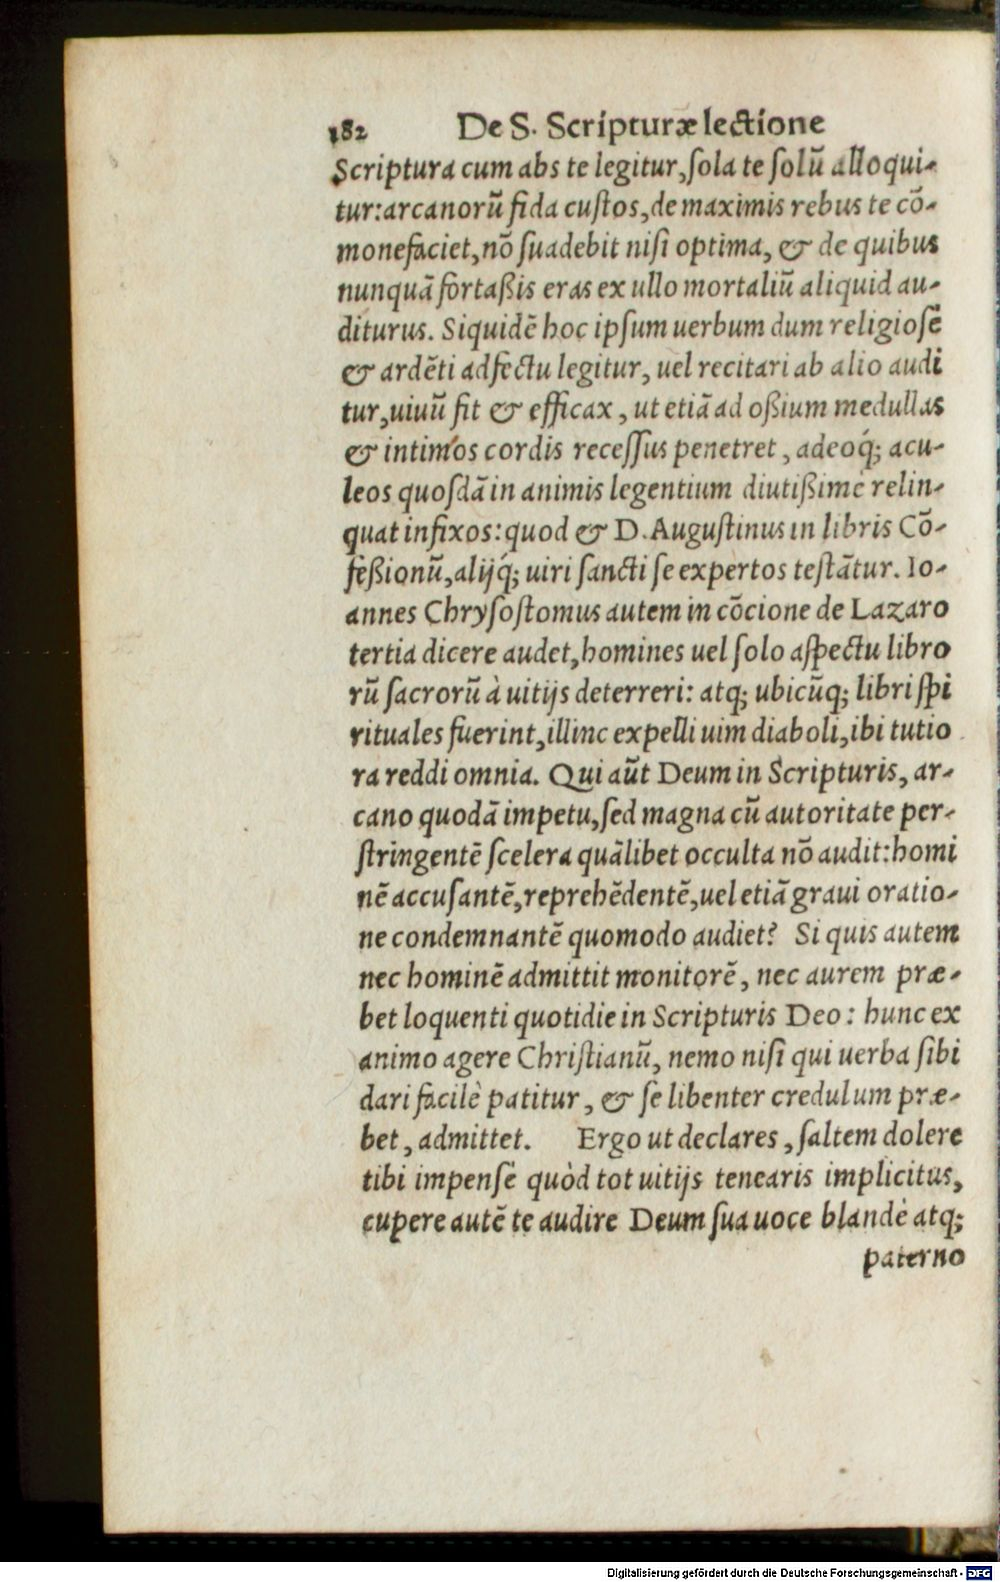 182 De S. Scripturæ lectione
Scriptura cum abs te legitur, ſola te ſolũ alloqui-
tur: arcanorũ fida cuſtos, de maximis rebus te cõ-
monefaciet, nõ ſuadebit niſi optima, & de quibus
nunquã fortaßis eras ex ullo mortaliũ aliquid au-
diturus. Siquidẽ hoc ipſum uerbum dum religioſè
& ardẽti adfectu legitur, uel recitari ab alio audi
tur, uiuũ fit & efficax, ut etiã ad oßium medullas
& intimos cordis receſſus penetret, adeoq́; acu-
leos quoſdã in animis legentium diutißimè relin-
quat infixos: quod & D. Auguſtinus in libris Cõ-
feßionũ, alijq́; uiri ſancti ſe expertos teſtãtur. Io-
annes Chryſoſtomus autem in cõcione de Lazaro
tertia dicere audet, homines uel ſolo aſpectu libro
rũ ſacrorũ à uitijs deterreri: atq; ubicũq; libri ſpi
rituales fuerint, illinc expelli uim diaboli, ibi tutio
ra reddi omnia. Qui aũt Deum in Scripturis, ar-
cano quodã impetu, ſed magna cũ autoritate per-
ſtringentẽ ſcelera quãlibet occulta nõ audit: homi
nẽ accuſantẽ, reprehẽdentẽ, uel etiã graui oratio-
ne condemnantẽ quomodo audiet? Si quis autem
nec hominẽ admittit monitorẽ, nec aurem præ-
bet loquenti quotidie in Scripturis Deo: hunc ex
animo agere Chriſtianũ, nemo niſi qui uerba ſibi
dari facilè patitur, & ſe libenter credulum præ-
bet, admittet. Ergo ut declares, ſaltem dolere
tibi impenſè quòd tot uitijs tenearis implicitus,
cupere autẽ te audire Deum ſua uoce blandè atq;
paterno
Digitalisierung gefördert durch die Deutsche Forschungsgemeinschaft - DFG